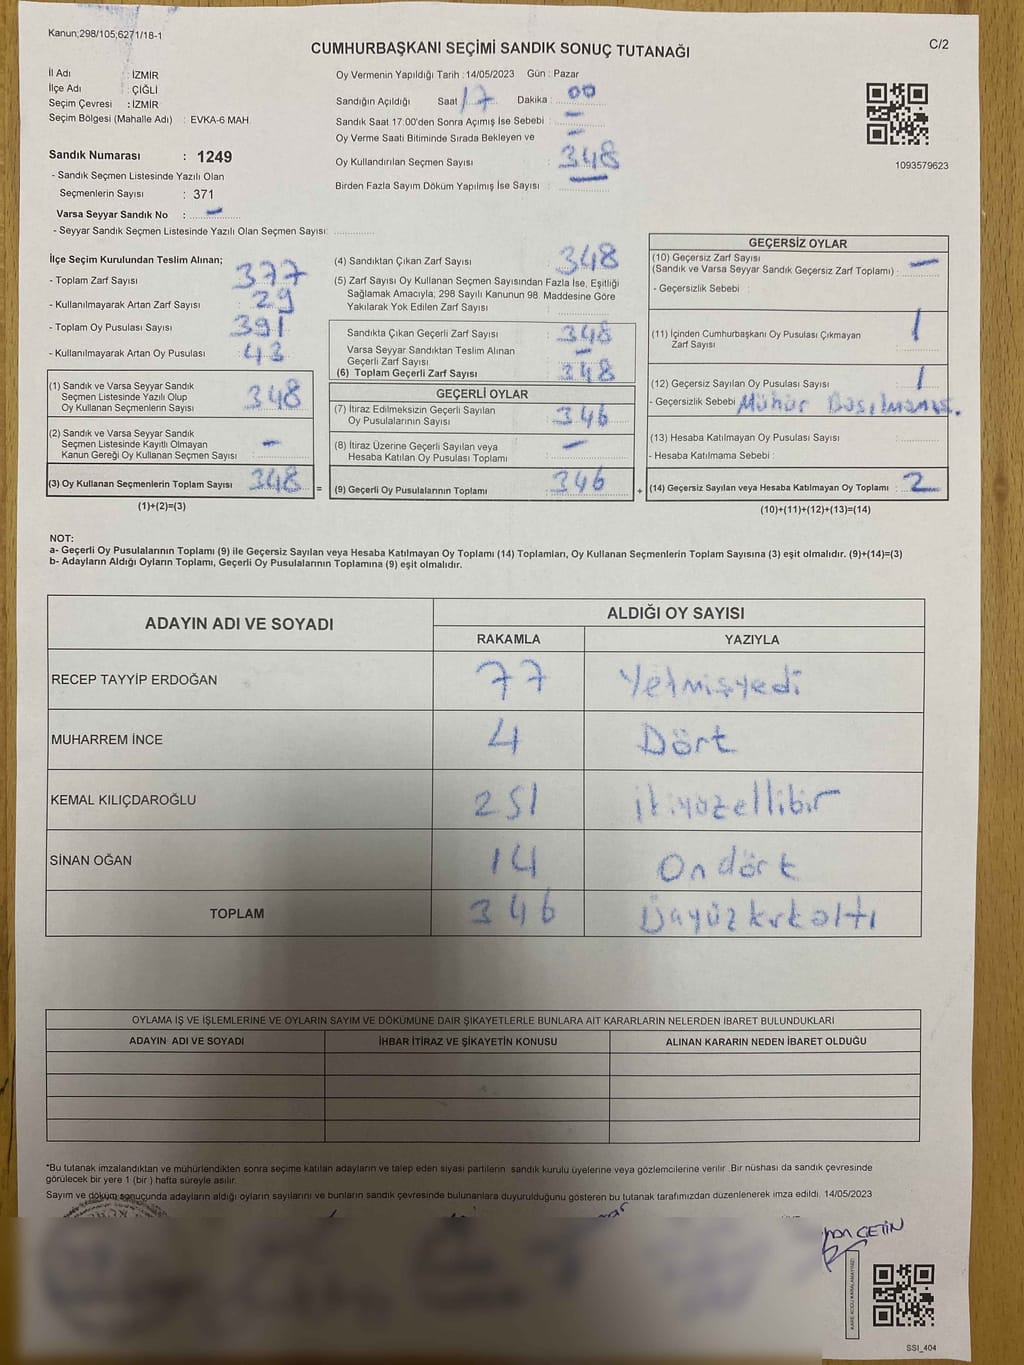 Kanun;298/105;6271/18-1
CUMHURBAŞKANI SEÇİMİ SANDIK SONUÇ TUTANAĞI
C/2
İl Adı : İZMİR
İlçe Adı : ÇİĞLİ
Seçim Çevresi : İZMİR
Seçim Bölgesi (Mahalle Adı) : EVKA-6 MAH.
Sandık Numarası : 1249
- Sandık Seçmen Listesinde Yazılı Olan
Seçmenlerin Sayısı : 371
Varsa Seyyar Sandık No : -
- Seyyar Sandık Seçmen Listesinde Yazılı Olan Seçmen Sayısı:
Oy Vermenin Yapıldığı Tarih : 14/05/2023 Gün : Pazar
Sandığın Açıldığı Saat 17 Dakika : 00
Sandık Saat 17:00'den Sonra Açımış İse Sebebi : -
Oy Verme Saati Bitiminde Sırada Bekleyen ve -
Oy Kullandırılan Seçmen Sayısı : 348
Birden Fazla Sayım Döküm Yapılmış İse Sayısı : -
1093579623
İlçe Seçim Kurulundan Teslim Alınan;
- Toplam Zarf Sayısı : 377
- Kullanılmayarak Artan Zarf Sayısı : 29
- Toplam Oy Pusulası Sayısı : 391
- Kullanılmayarak Artan Oy Pusulası : 43
(1) Sandık ve Varsa Seyyar Sandık
Seçmen Listesinde Yazılı Olup
Oy Kullanan Seçmenlerin Sayısı : 348
(2) Sandık ve Varsa Seyyar Sandık
Seçmen Listesinde Kayıtlı Olmayan
Kanun Gereği Oy Kullanan Seçmen Sayısı : -
(3) Oy Kullanan Seçmenlerin Toplam Sayısı : 348
(1)+(2)=(3)
(4) Sandıktan Çıkan Zarf Sayısı : 348
(5) Zarf Sayısı Oy Kullanan Seçmen Sayısından Fazla İse, Eşitliği
Sağlamak Amacıyla, 298 Sayılı Kanunun 98. Maddesine Göre
Yakılarak Yok Edilen Zarf Sayısı :
Sandıkta Çıkan Geçerli Zarf Sayısı : 348
Varsa Seyyar Sandıktan Teslim Alınan
Geçerli Zarf Sayısı : -
(6) Toplam Geçerli Zarf Sayısı : 348
GEÇERLİ OYLAR
(7) İtiraz Edilmeksizin Geçerli Sayılan
Oy Pusulalarının Sayısı : 346
(8) İtiraz Üzerine Geçerli Sayılan veya
Hesaba Katılan Oy Pusulası Toplamı : -
= (9) Geçerli Oy Pusulalarının Toplamı : 346
GEÇERSİZ OYLAR
(10) Geçersiz Zarf Sayısı
(Sandık ve Varsa Seyyar Sandık Geçersiz Zarf Toplamı) : -
- Geçersizlik Sebebi :
(11) İçinden Cumhurbaşkanı Oy Pusulası Çıkmayan
Zarf Sayısı : 1
(12) Geçersiz Sayılan Oy Pusulası Sayısı : 1
- Geçersizlik Sebebi : Mühür Basılmamış.
(13) Hesaba Katılmayan Oy Pusulası Sayısı :
- Hesaba Katılmama Sebebi :
+ (14) Geçersiz Sayılan veya Hesaba Katılmayan Oy Toplamı : 2
(10)+(11)+(12)+(13)=(14)
NOT:
a- Geçerli Oy Pusulalarının Toplamı (9) ile Geçersiz Sayılan veya Hesaba Katılmayan Oy Toplamı (14) Toplamları, Oy Kullanan Seçmenlerin Toplam Sayısına (3) eşit olmalıdır. (9)+(14)=(3)
b- Adayların Aldığı Oyların Toplamı, Geçerli Oy Pusulalarının Toplamına (9) eşit olmalıdır.
ADAYIN ADI VE SOYADI
ALDIĞI OY SAYISI
RAKAMLA YAZIYLA
RECEP TAYYİP ERDOĞAN 77 Yetmişyedi
MUHARREM İNCE 4 Dört
KEMAL KILIÇDAROĞLU 251 ikiyüzellibir
SİNAN OĞAN 14 Ondört
TOPLAM 346 Üçyüzkırkaltı
OYLAMA İŞ VE İŞLEMLERİNE VE OYLARIN SAYIM VE DÖKÜMÜNE DAİR ŞİKAYETLERLE BUNLARA AİT KARARLARIN NELERDEN İBARET BULUNDUKLARI
ADAYIN ADI VE SOYADI İHBAR İTİRAZ VE ŞİKAYETİN KONUSU ALINAN KARARIN NEDEN İBARET OLDUĞU
*Bu tutanak imzalandıktan ve mühürlendikten sonra seçime katılan adayların ve talep eden siyasi partilerin sandık kurulu üyelerine veya gözlemcilerine verilir. Bir nüshası da sandık çevresinde
görülecek bir yere 1 (bir ) hafta süreyle asılır.
Sayım ve döküm sonucunda adayların aldığı oyların sayılarını ve bunların sandık çevresinde bulunanlara duyurulduğunu gösteren bu tutanak tarafımızdan düzenlenerek imza edildi. 14/05/2023
ÇETİN
KARE KODU KARALAMAYINIZ!
SSI_404